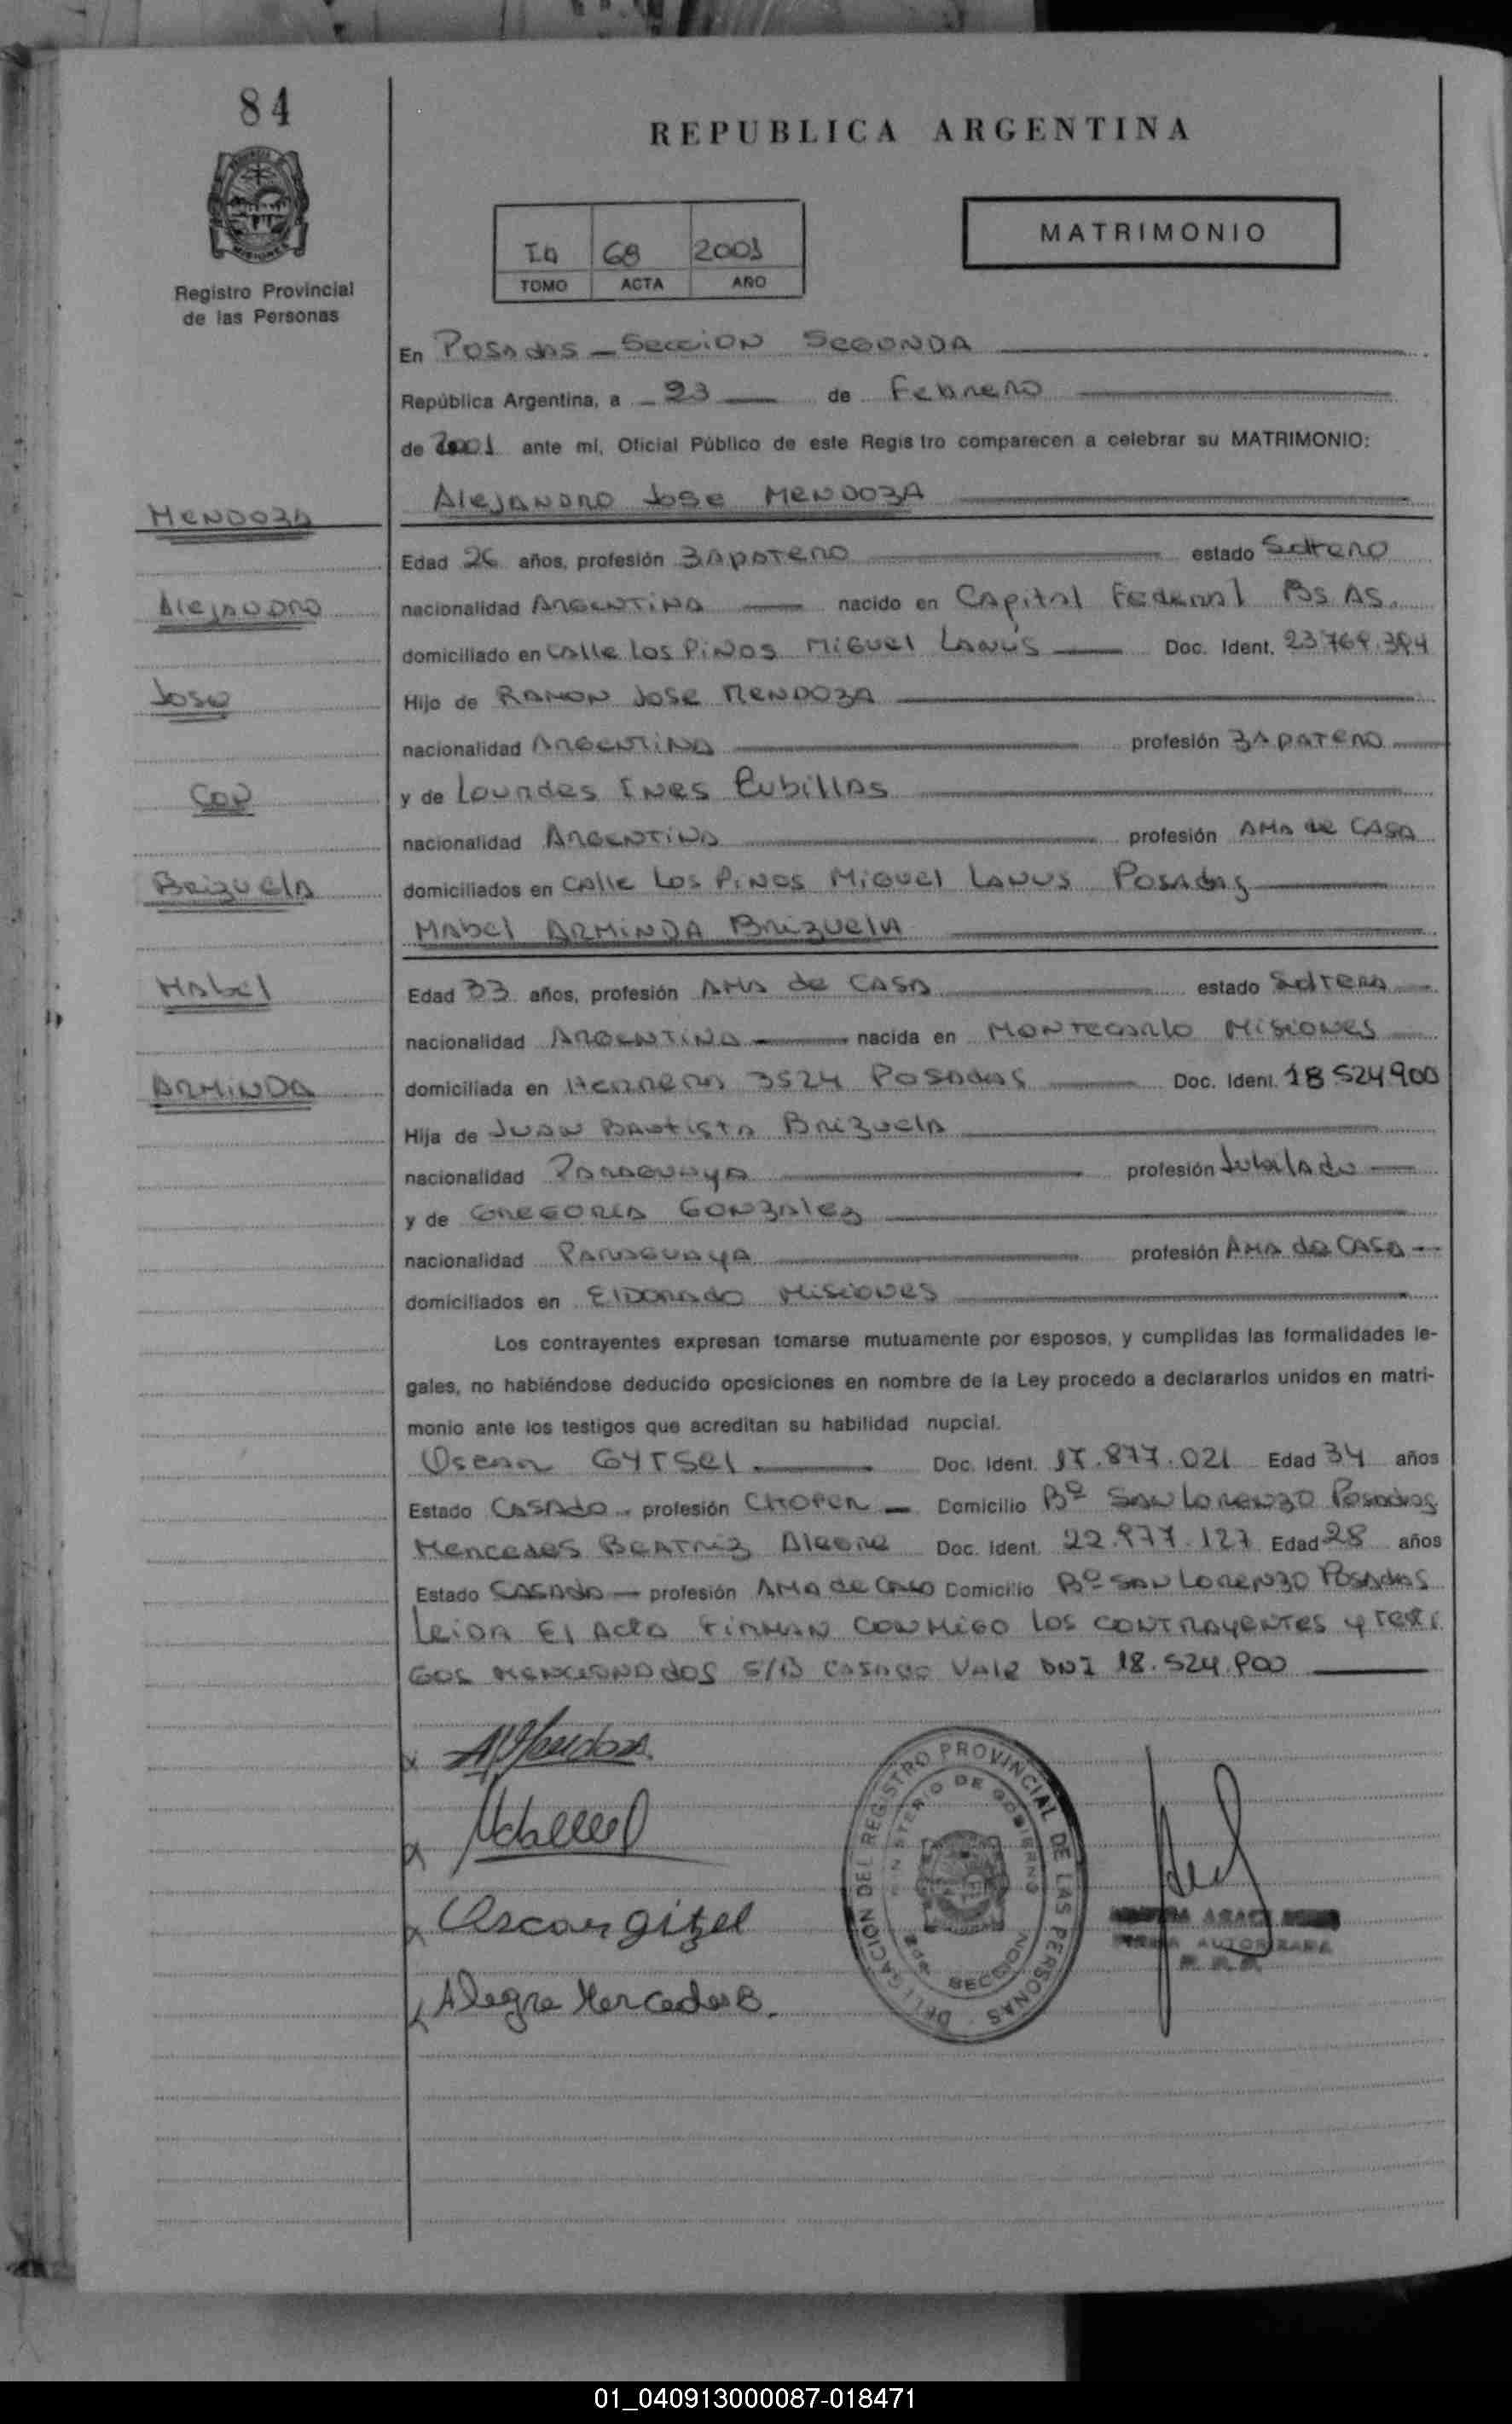 84
REPUBLICA ARGENTINA
MATRIMONIO
68 2001
TOMO ACTA AÑO
Registro Provincial
de las Personas
En Posadas - Seccion Segunda
República Argentina, a 23 de Febrero
de 2001 ante mi, Oficial Público de este Regis tro comparecen a celebrar su MATRIMONIO:
Alejandro Jose Mendoza
Mendoza
Edad 26 años, profesión Zapatero estado Soltero
Alejandro
nacionalidad Argentina nacido en Capital Federal Bs As.
domiciliado en calle Los Pinos Miguel Lanús Doc. Ident.
Jose
Hijo de Ramon Jose Mendoza
nacionalidad Argentina profesión Zapatero
Con
y de Lourdes Ines Cubillas
nacionalidad Argentina profesión Ama de Casa
Brizuela
domiciliados en calle Los Pinos Miguel Lanus Posadas
Mabel Arminda Brizuela
Mabel
Edad 33 años, profesión Ama de Casa estado Soltera
nacionalidad Argentina nacida en Montecarlo Misiones
Arminda
domiciliada en Herrera 3524 Posadas Doc. Ident. 18524900
Hija de Juan Bautista Brizuela
nacionalidad Paraguaya profesión Jubilado
y de Gregoria Gonzalez
nacionalidad Paraguaya profesión Ama de Casa
domiciliados en Eldorado Misiones
Los contrayentes expresan tomarse mutuamente por esposos, y cumplidas las formalidades le-
gales, no habiéndose deducido oposiciones en nombre de la Ley procedo a declararlos unidos en matri-
monio ante los testigos que acreditan su habilidad nupcial.
Oscar Doc. Ident. 17.877.021 Edad 34 años
Estado Casado profesión Chofer Domicilio Bº San Lorenzo Posadas
Mercedes Beatriz Alegre Doc. Ident. 22.977.127 Edad 28 años
Estado Casada profesión Ama de Casa Domicilio Bº San Lorenzo Posadas
Leida El Acta Firman conmigo los contrayentes y testi
gos mencionados S/B casado Vale DNI 18.524.900
A J Mendoza
Oscar gitzel
Alegre Mercedes B.
DELEGACION DEL REGISTRO PROVINCIAL DE LAS PERSONAS
MINISTERIO DE GOBIERNO
SECCION
FIRMA AUTORIZADA
01_040913000087-018471